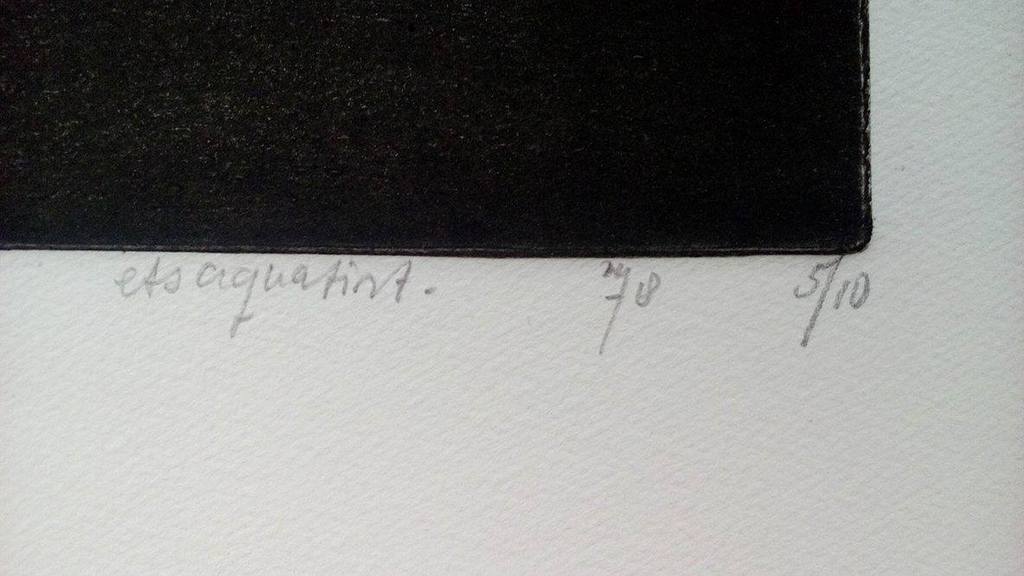 ets aquatint. '78 5/10